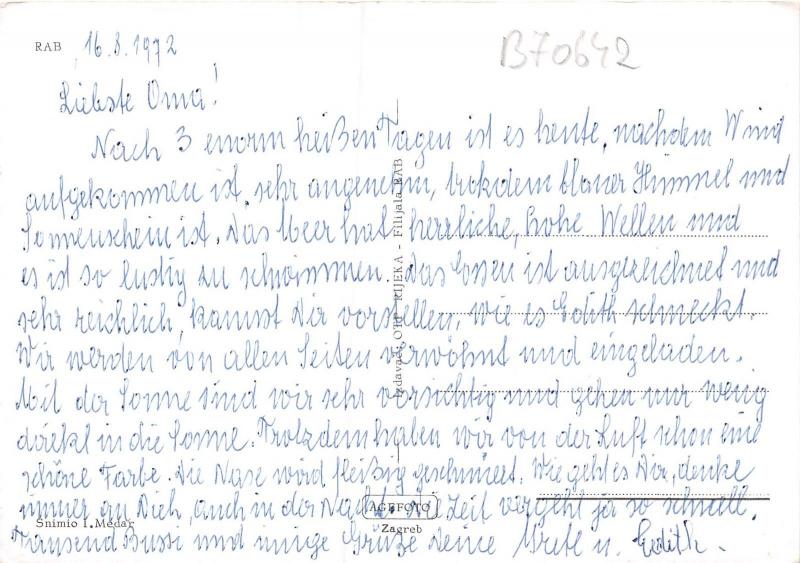 RAB
16.8.1972
B70642
Liebste Oma!
Nach 3 enorm heißen Tagen ist es heute, nachdem Wind
aufgekommen ist, sehr angenehm, trotzdem blauer Himmel und
Sonnenschein ist. Das Meer hat herrliche, hohe Wellen und
es ist so lustig zu schwimmen. Das Essen ist ausgezeichnet und
sehr reichlich, kannst Dir vorstellen, wie es Edith schmeckt.
Wir werden von allen Seiten verwöhnt und eingeladen.
Mit der Sonne sind wir sehr vorsichtig und gehen nur wenig
direkt in die Sonne. Trotzdem haben wir von der Luft schon eine
schöne Farbe. Die Nase wird fleißig geschmiert. Wie geht es Dir, denke
immer an Dich, auch in der Nacht. Die Zeit vergeht ja so schnell.
Tausend Bussi und innige Grüße Deine Gretl u. Edith.
Izdavač: OTP RIJEKA - Filijala RAB
Snimio I. Medar
AGEFOTO
Zagreb